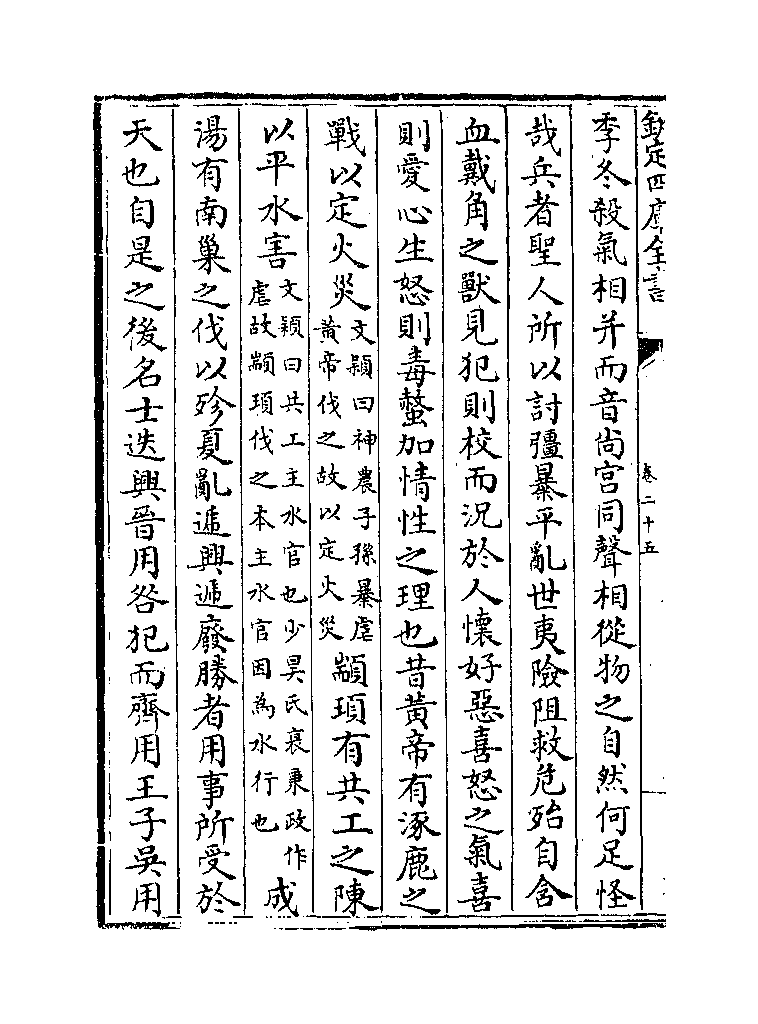 欽定四庫全書
卷二十五
季冬殺氣相并而音尚宫同聲相從物之自然何足怪
哉兵者聖人所以討彊暴平亂世夷險阻救危殆自含
血戴角之獸見犯則校而況於人懷好惡喜怒之氣喜
則愛心生怒則毒螫加情性之理也昔黄帝有涿鹿之
戰以定火災文穎曰神農子孫暴虐黄帝伐之故以定火災顓頊有共工之陳
以平水害文穎曰共工主水官也少昊氏衰秉政作虐故顓頊伐之本主水官因為水行也成
湯有南巢之伐以殄夏亂遞興遞廢勝者用事所受於
天也自是之後名士迭興晉用咎犯而齊用王子吳用